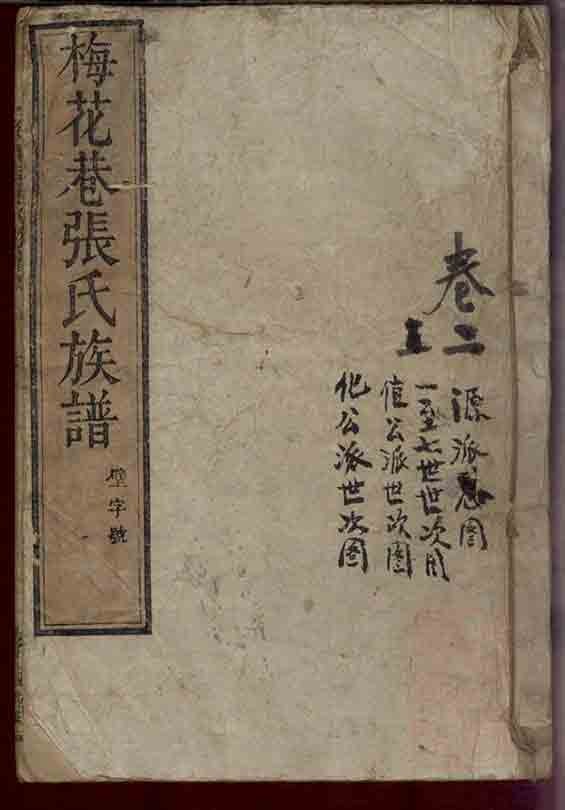 梅花巷張氏族譜
壁字號
卷二
源派總圖
一至七世世次圖
值公派世次圖
化公派世次圖